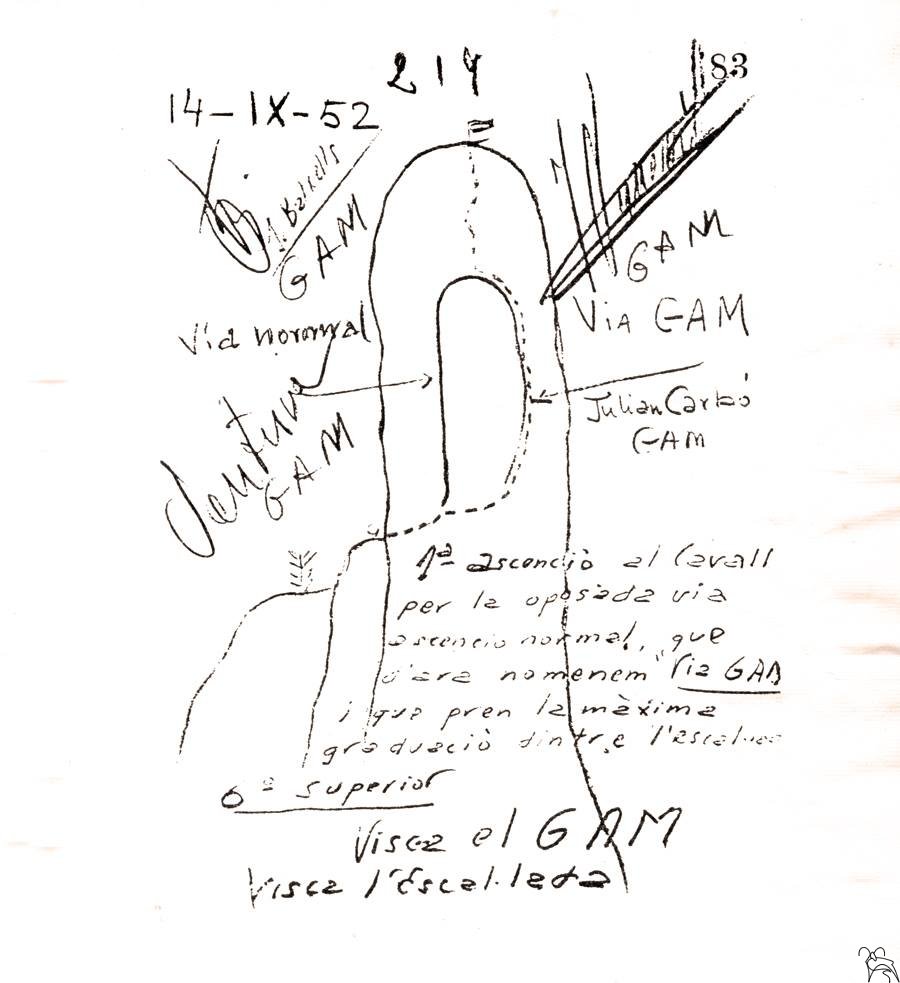 214
83
14-IX-52
J. Balsells
GAM
GAM
Via GAM
Via normal
Julian Carbó
GAM
GAM
1ª ascenciò al Cavall
per la oposada via
ascencio normal, que
d'ara nomenem "Via GAM
i que pren la màxima
graduaciò dintre l'escalada
6ª superior
Visca el GAM
Visca l'Escal·lada